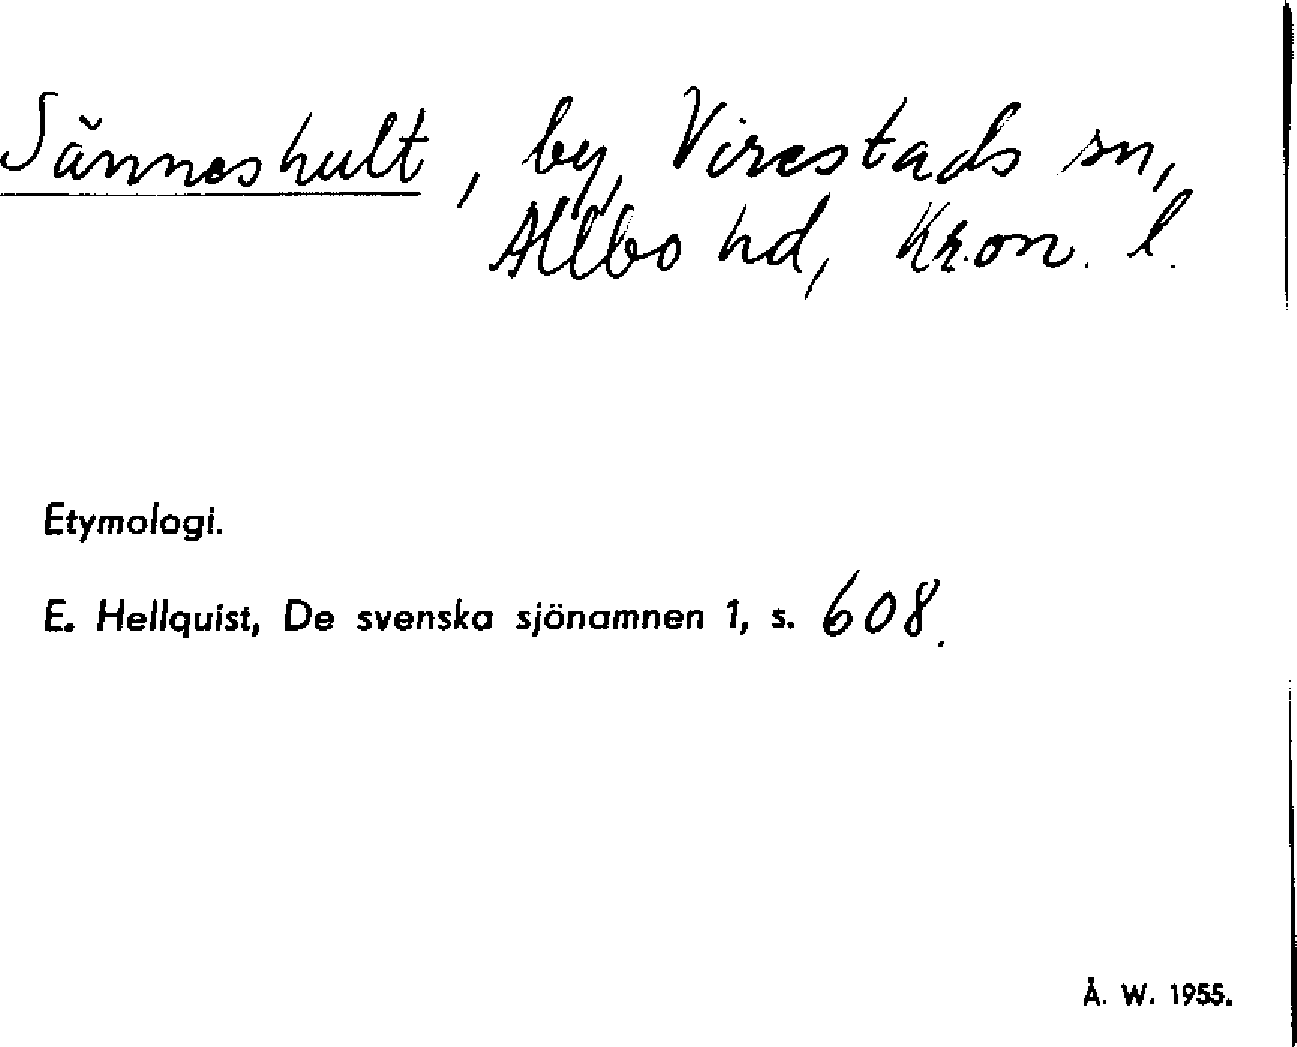 Sänneshult, by, Virestads sn,
Allbo hd, Kron. l.
Etymologi.
E. Hellquist, De svenska sjönamnen 1, s. 608.
Å. W. 1955.